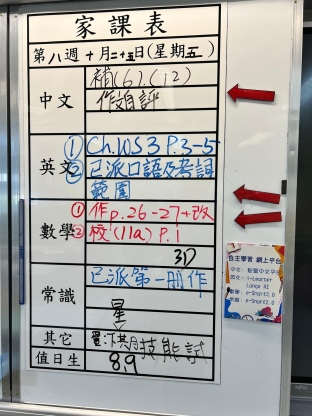 家課表
第八週十月二十五日(星期五)
中文
補(6).(12)
作文自評
英文
① Ch.WS3 P.3-5
② 已派口語及考詞
範圍
數學
① 作p.26-27+改
② 校(11a) P.1
3D
常識
已派第一冊作
星
其它
技能試
值日生
8,9
自主學習 網上平台